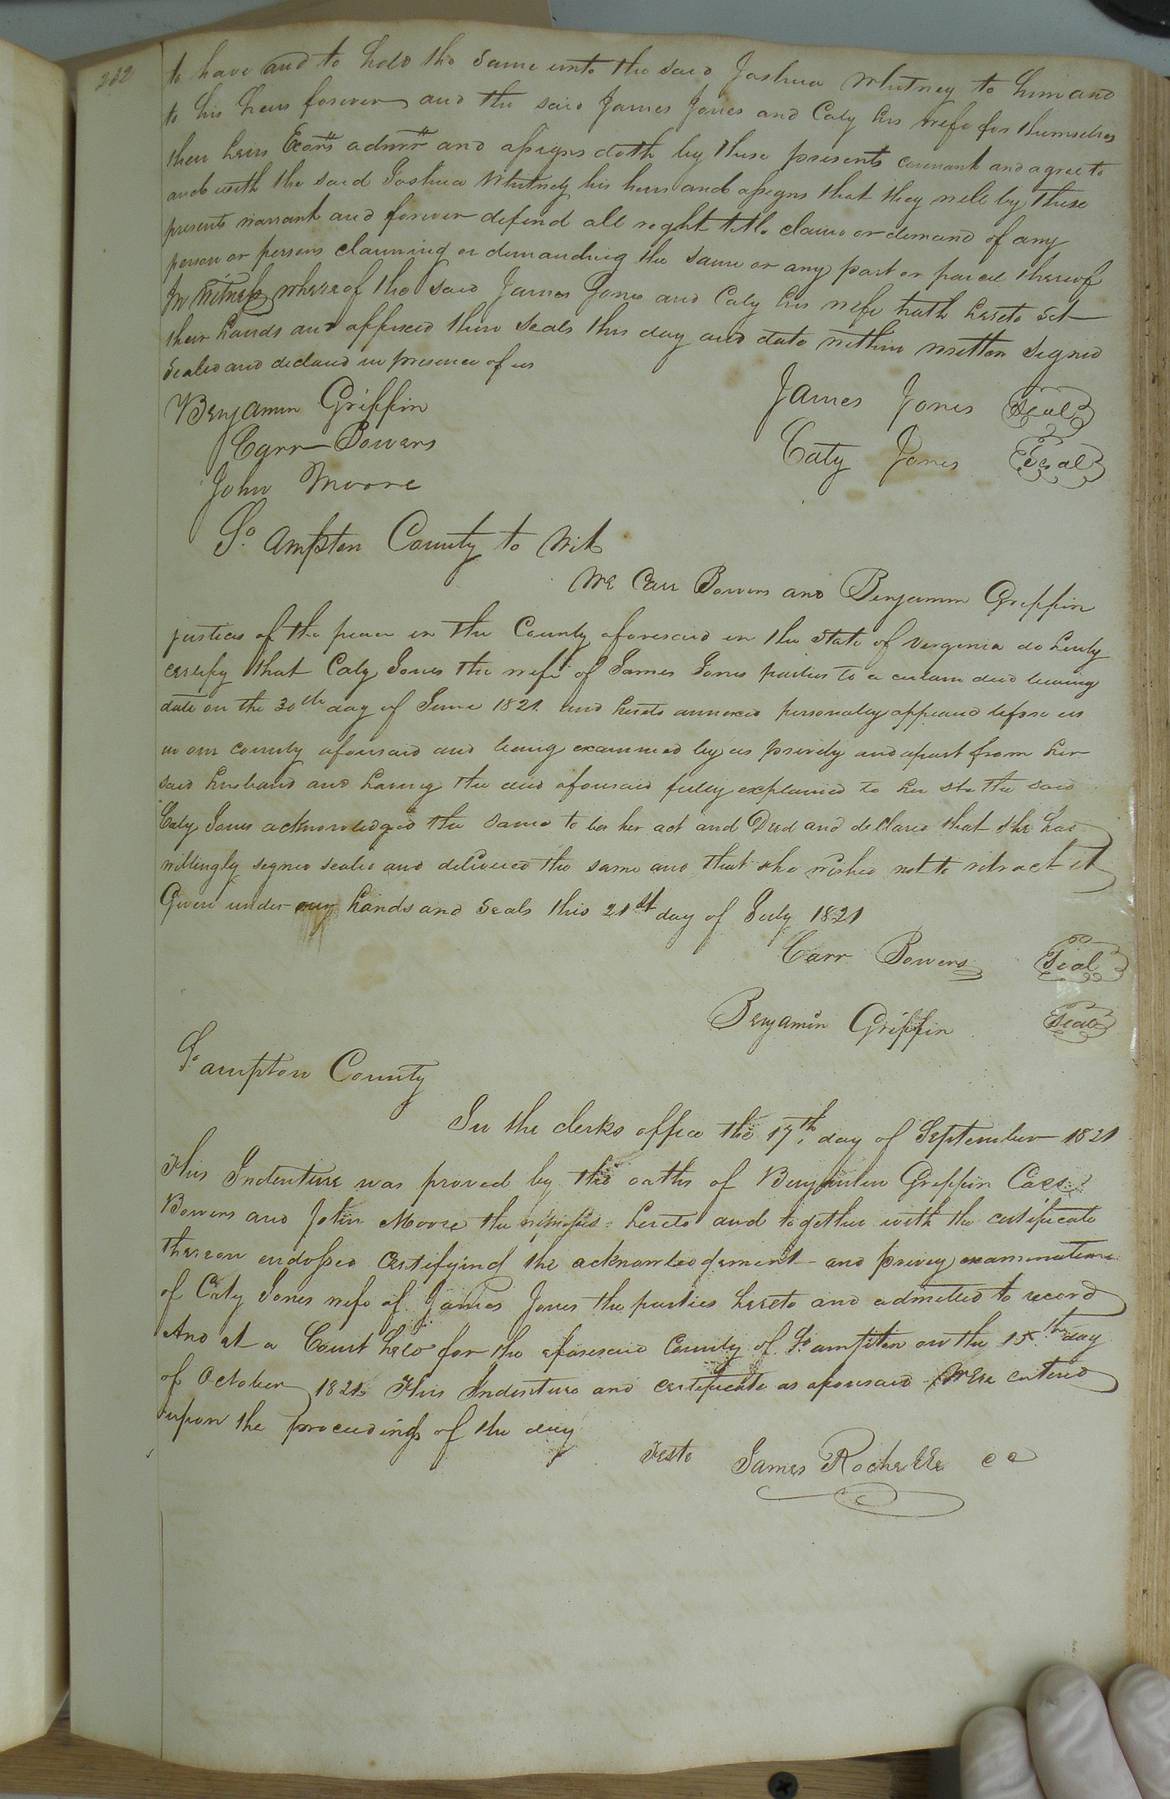 212
to have and to hold the same unto the said Joshua Whitney to him and
to his heirs forever and the said James Jones and Caty his wife for themselves
their heirs Exors admrs and assigns doth by these presents covenant and agree to
and with the said Joshua Whitney his heirs and assigns that they will by these
presents warrant and forever defend all right title claim or demand of any
person or persons claiming or demanding the same or any part or parcel thereof
In Witness whereof the said James Jones and Caty his wife hath hereto set
their hands and affixed their seals this day and date within written Signed
Sealed and declared in presence of us
Benjamin Griffin James Jones Seal
Carr Bowers Caty Jones Seal
John Moore
So. Ampton County to Wit
We Carr Bowers and Benjamin Griffin
justices of the peace in the County aforesaid in the State of Virginia do hereby
certify that Caty Jones the wife of James Jones parties to a certain deed bearing
date on the 30th day of June 1821 and hereto annexed personally appeared before us
in our county aforesaid and being examined by us privily and apart from her
said husband and having the deed aforesaid fully explained to her she the said
Caty Jones acknowledged the same to be her act and Deed and declared that she had
willingly signed sealed and delivered the same and that she wished not to retract it
Given under our hands and Seals this 21st day of July 1821
Carr Bowers Seal
Benjamin Griffin Seal
So ampton County
In the clerks office the 17th day of September 1821
This Indenture was proved by the oaths of Benjamin Griffin Carr
Bowers and John Moore the witnesses hereto and together with the certificate
thereon endossed Certifyind the acknowledgement and privey examination
of Caty Jones wife of James Jones the parties hereto and admitted to record
And at a Court held for the aforesaid County of So ampton on the 15th day
of October 1821 This Indenture and certificate as aforesaid Were entered
upon the proceedings of the day
Teste James Rochelle CC